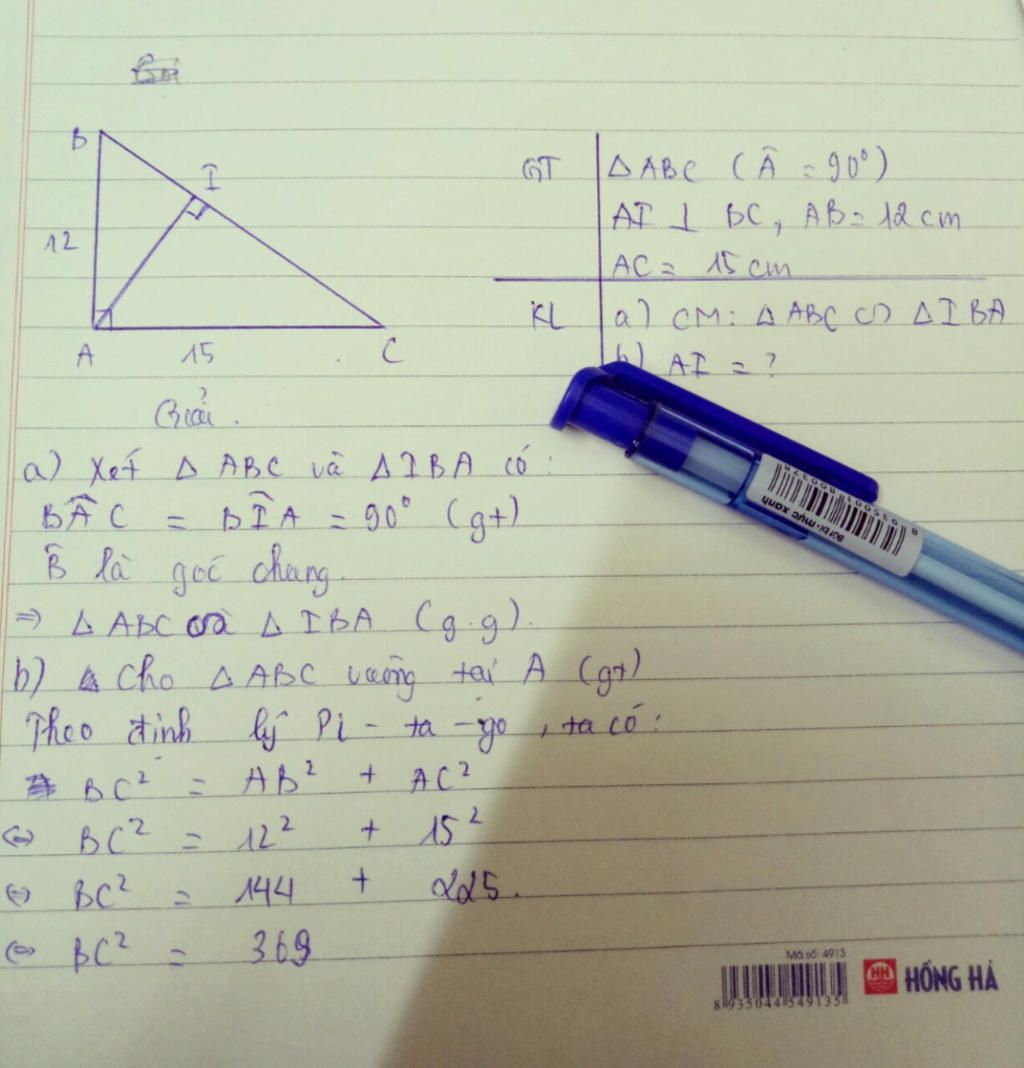 B
I
12
A
15
C
GT
△ABC (Â = 90°)
AI ⊥ BC, AB = 12 cm
AC = 15 cm
KL
a) CM: △ABC ∽ △IBA
b) AI = ?
Giải.
a) Xét △ABC và △IBA có:
BÂC = BÎA = 90° (gt)
B̂ là góc chung.
⇒ △ABC ∽ △IBA (g.g).
b) Cho △ABC vuông tại A (gt)
Theo định lý Pi-ta-go, ta có:
BC² = AB² + AC²
⇔ BC² = 12² + 15²
⇔ BC² = 144 + 225.
⇔ BC² = 369
Bút bi - mực xanh
Mã số: 4913
8935044549135
HH HỒNG HÀ